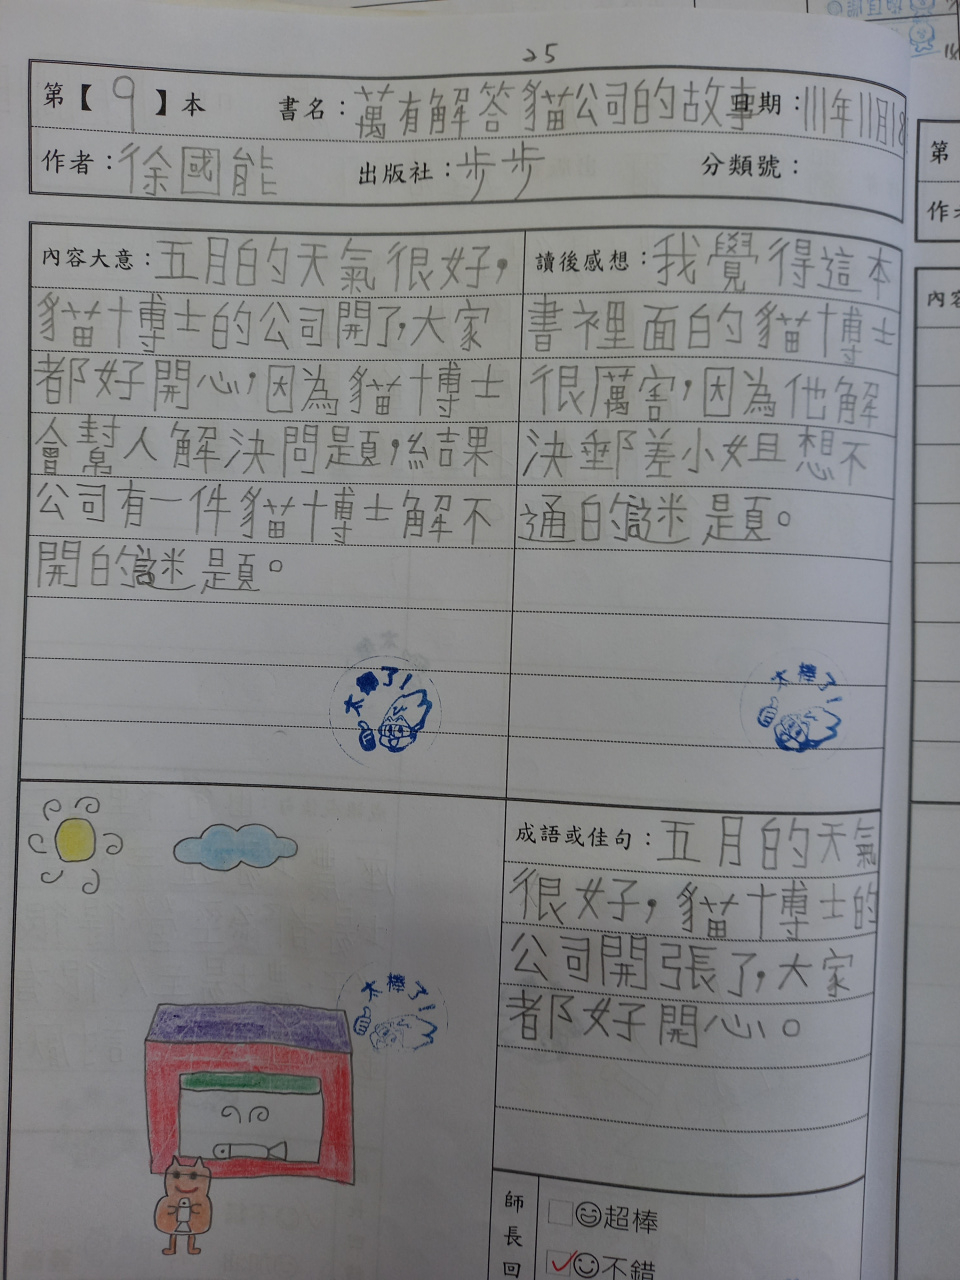 25
第【9】本 書名：萬有解答貓公司的故事 日期：111年11月18
作者：徐國能 出版社：步步 分類號：
內容大意：五月的天氣很好，
貓博士的公司開了，大家
都好開心，因為貓博士
會幫人解決問題，結果
公司有一件貓博士解不
開的謎題。
太棒了！
讀後感想：我覺得這本
書裡面的貓博士
很厲害，因為他解
決郵差小姐想不
通的謎題。
太棒了！
太棒了！
成語或佳句：五月的天氣
很好，貓博士的
公司開張了，大家
都好開心。
師長回
超棒
不錯
第
作者
內容